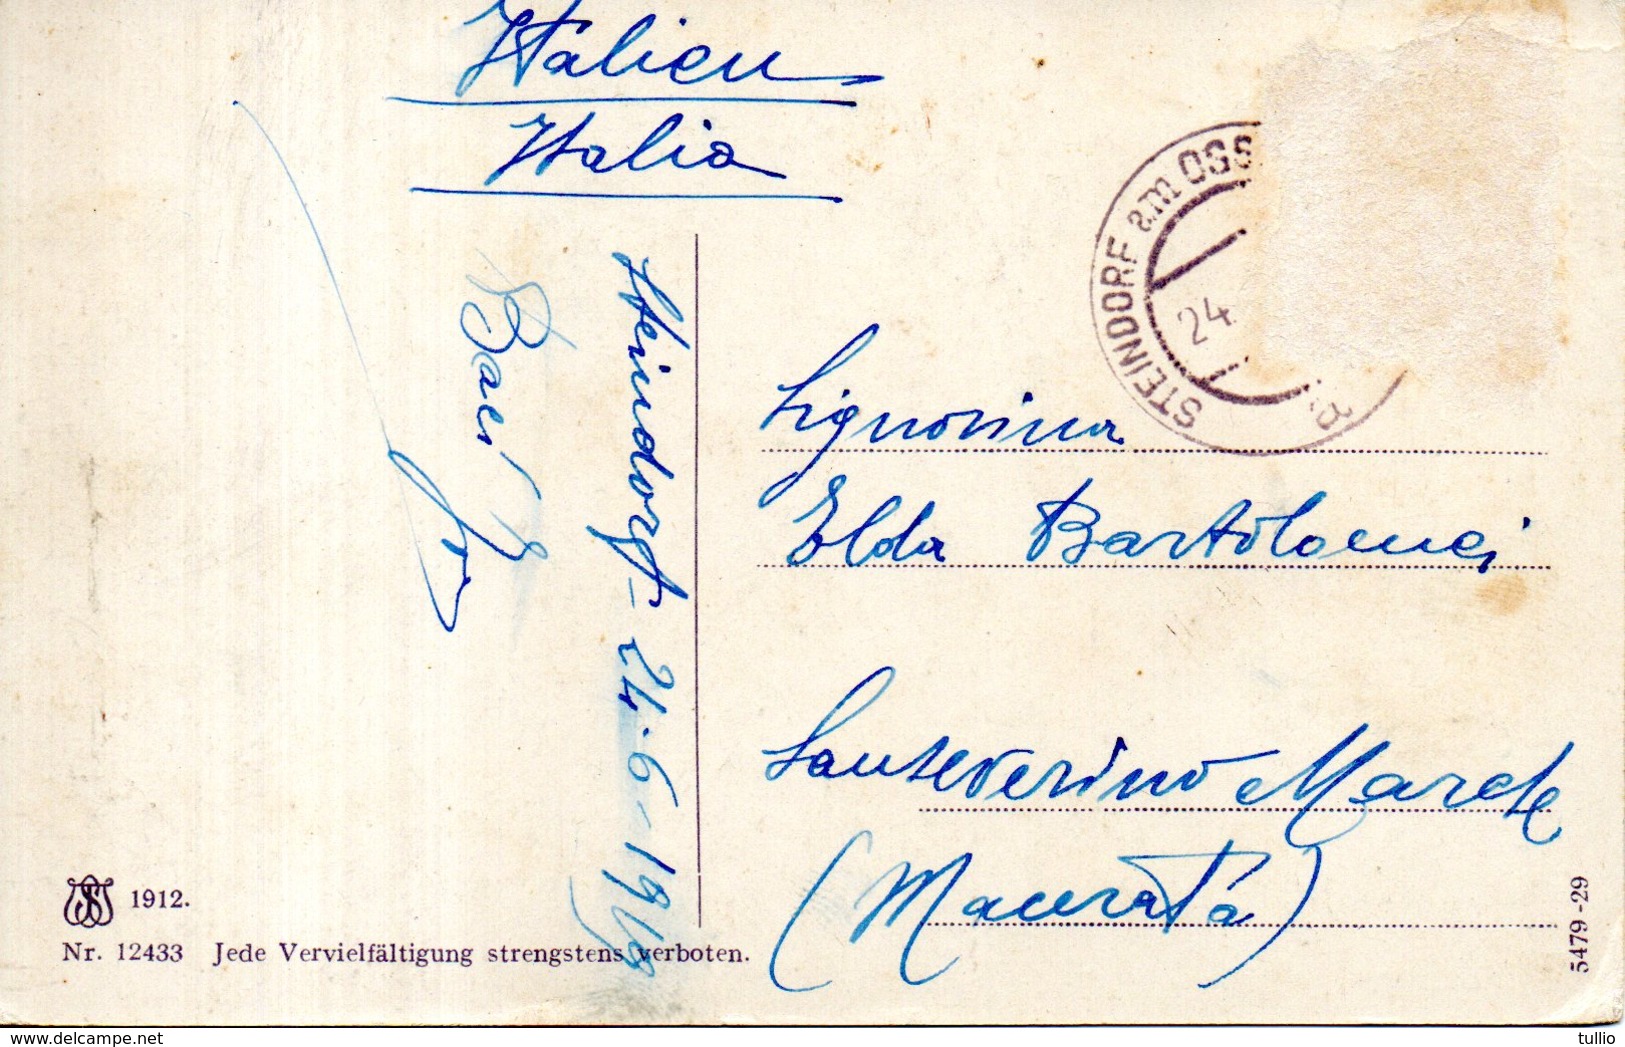 Italien
Italia
STEINDORF am OSS
24.
a
Steindorf - 24.6-19
Baci
Signorina
Elda Bartolomei
Sanseverino Marche
(Macerata)
1912.
Nr. 12433 Jede Vervielfältigung strengstens verboten.
5479-29
http://www.delcampe.net
tullio